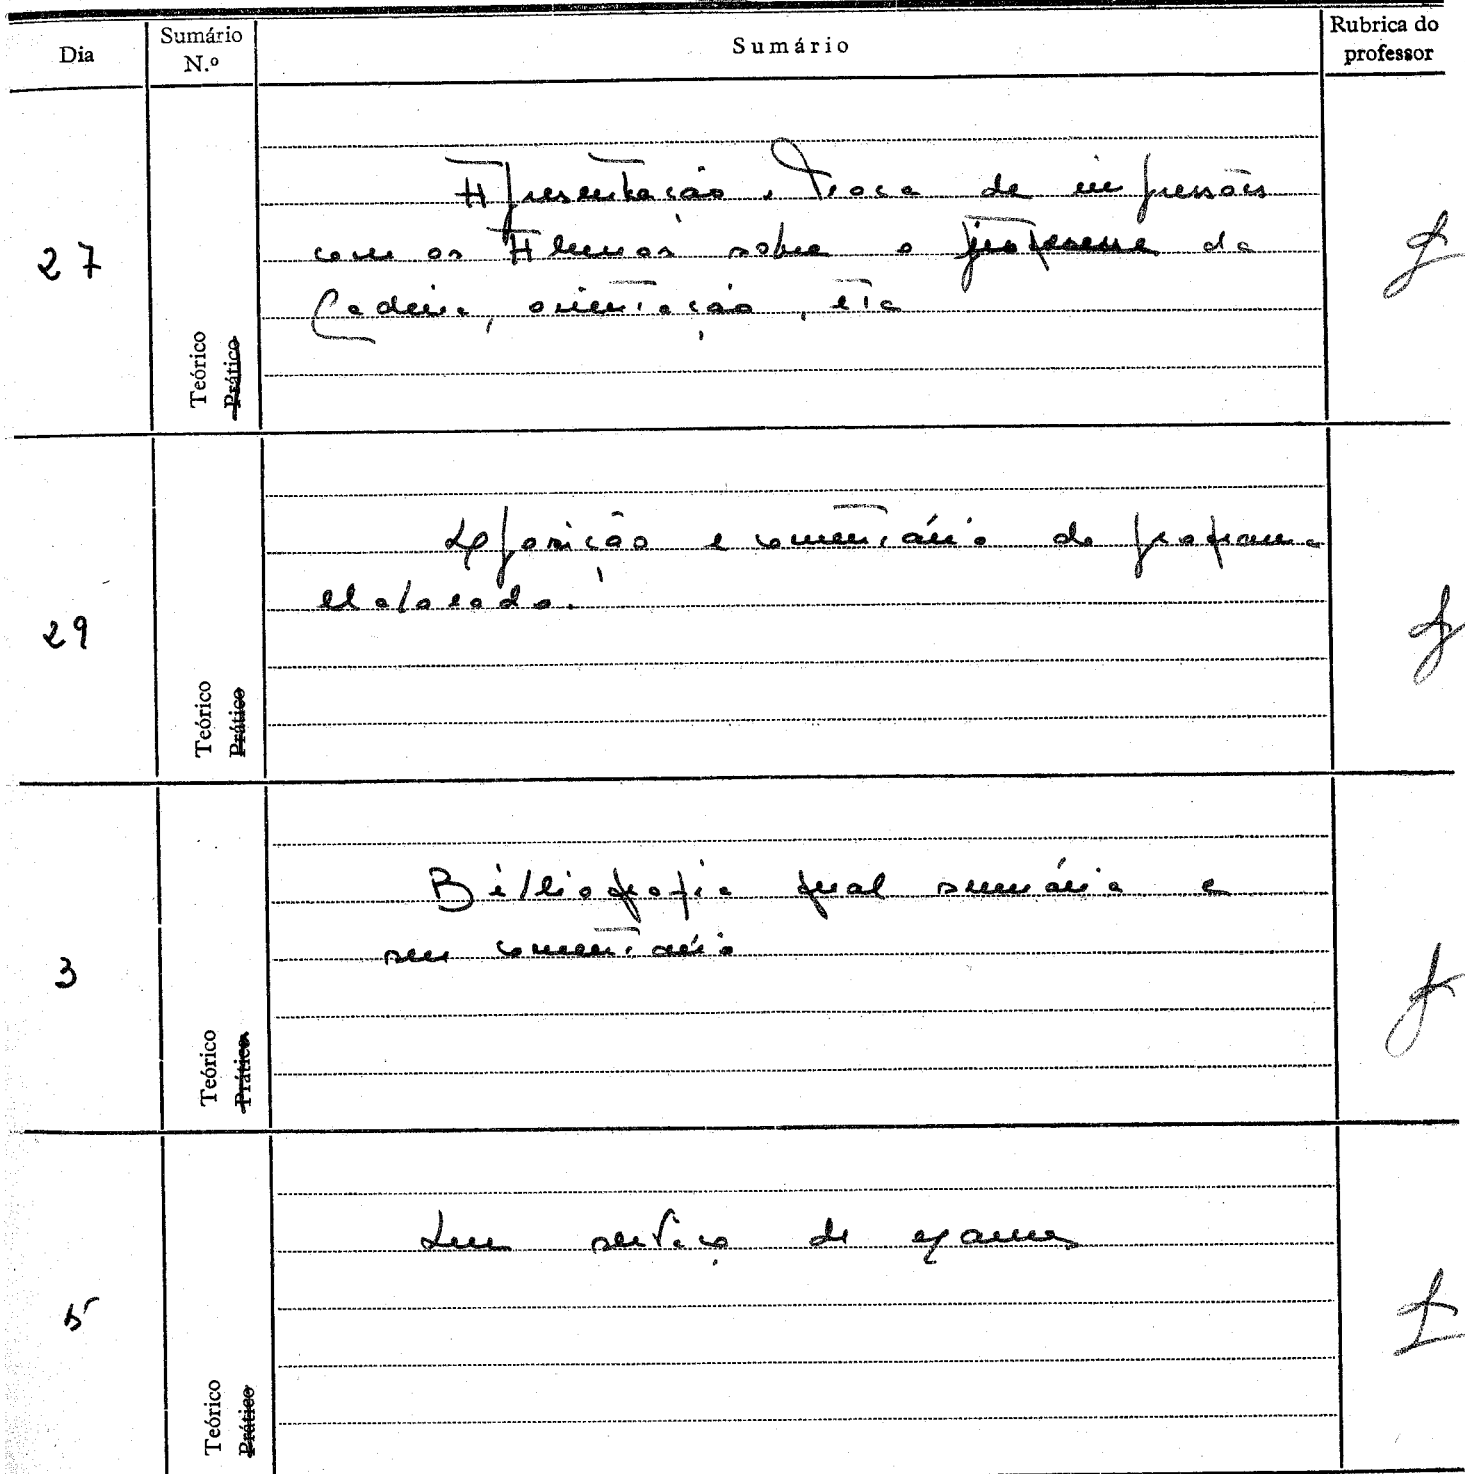 Dia Sumário N.º Sumário Rubrica do professor
27
Apresentação. Troca de impressões
com os Alunos sobre o programa da
Cadeira, orientação, etc
Teórico
Prático
29
Exposição e comentário do programa
elaborado.
Teórico
Prático
3
Bibliografia geral sumária e
seu comentário
Teórico
Prático
5
Em serviço de exames
Teórico
Prático